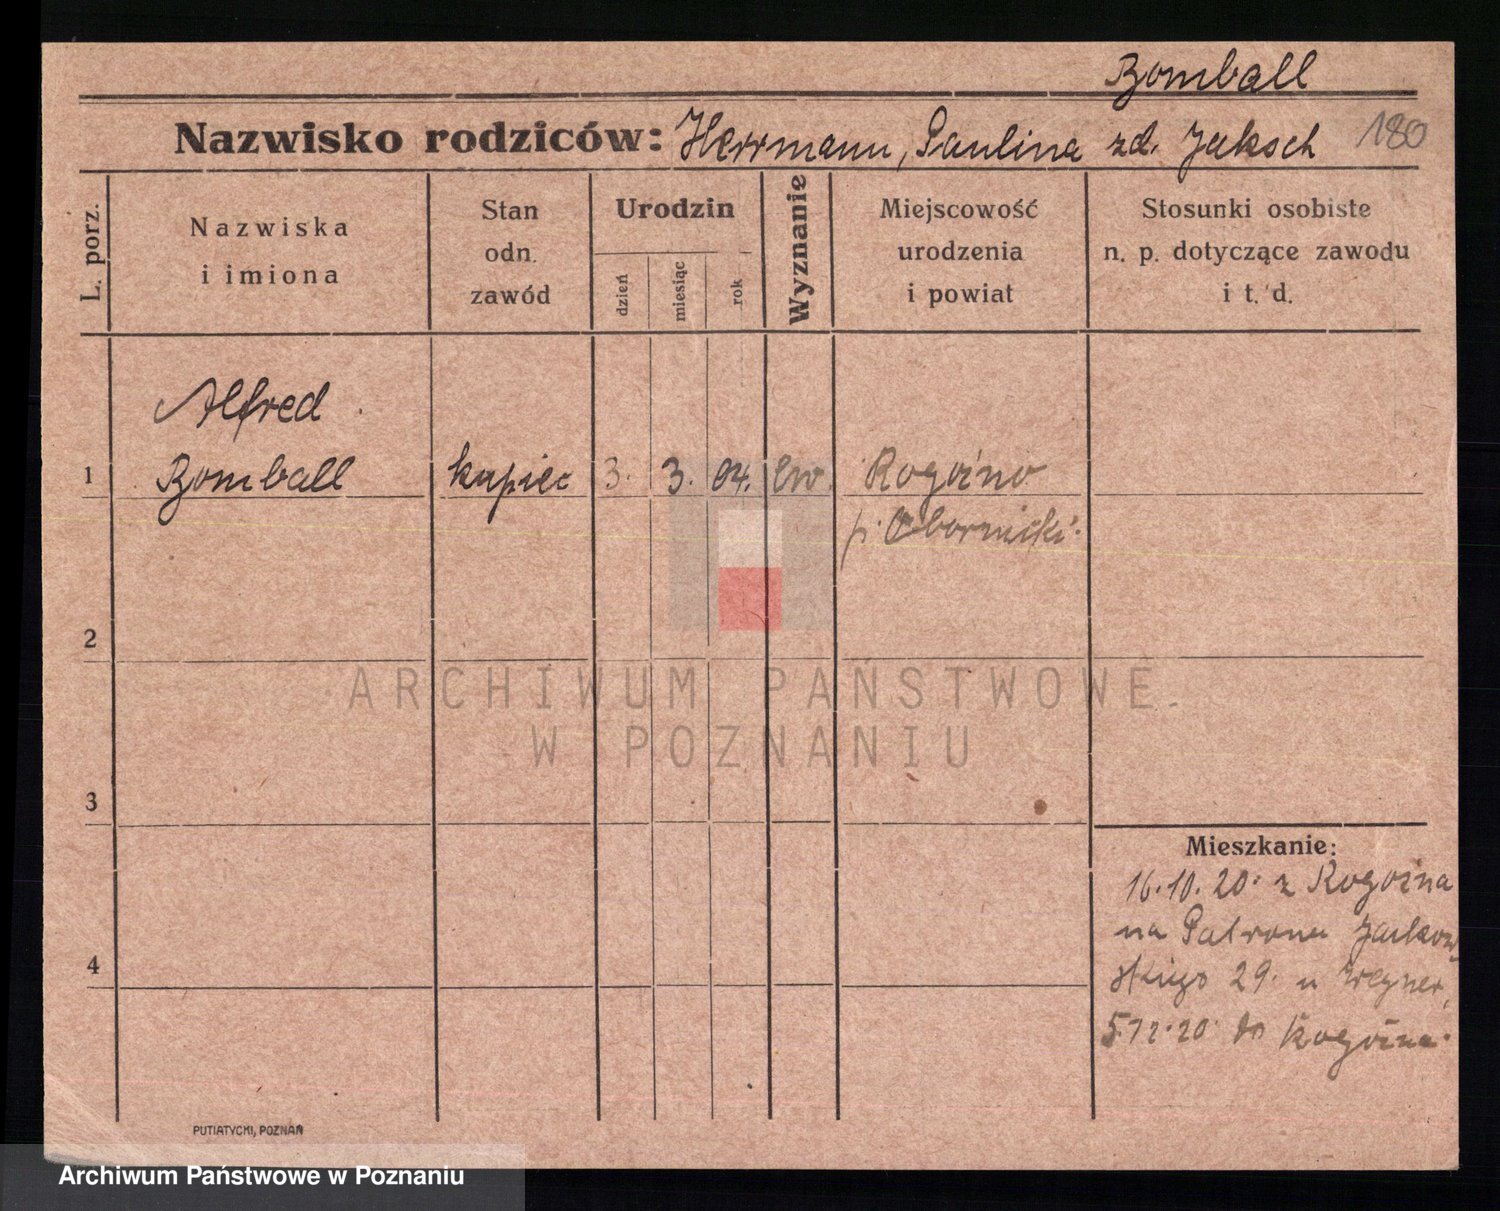 Bomball
Nazwisko rodziców: Herrmann, Paulina zd. Jaksch 180
L. porz.
Nazwiska
i imiona
Stan
odn.
zawód
Urodzin
dzień
miesiąc
rok
Wyznanie
Miejscowość
urodzenia
i powiat
Stosunki osobiste
n. p. dotyczące zawodu
i t. d.
Alfred
1 Bomball kupiec 3. 3. 04. ew. Rogoźno
p. Obornicki.
2
ARCHIWUM PAŃSTWOWE
W POZNANIU
3
Mieszkanie:
16.10.20. z Rogoźna
na Patrona Jackow
skiego 29. u Wegner,
4
5.12.20 do Rogoźna.
PUTIATYCKI, POZNAŃ
Archiwum Państwowe w Poznaniu